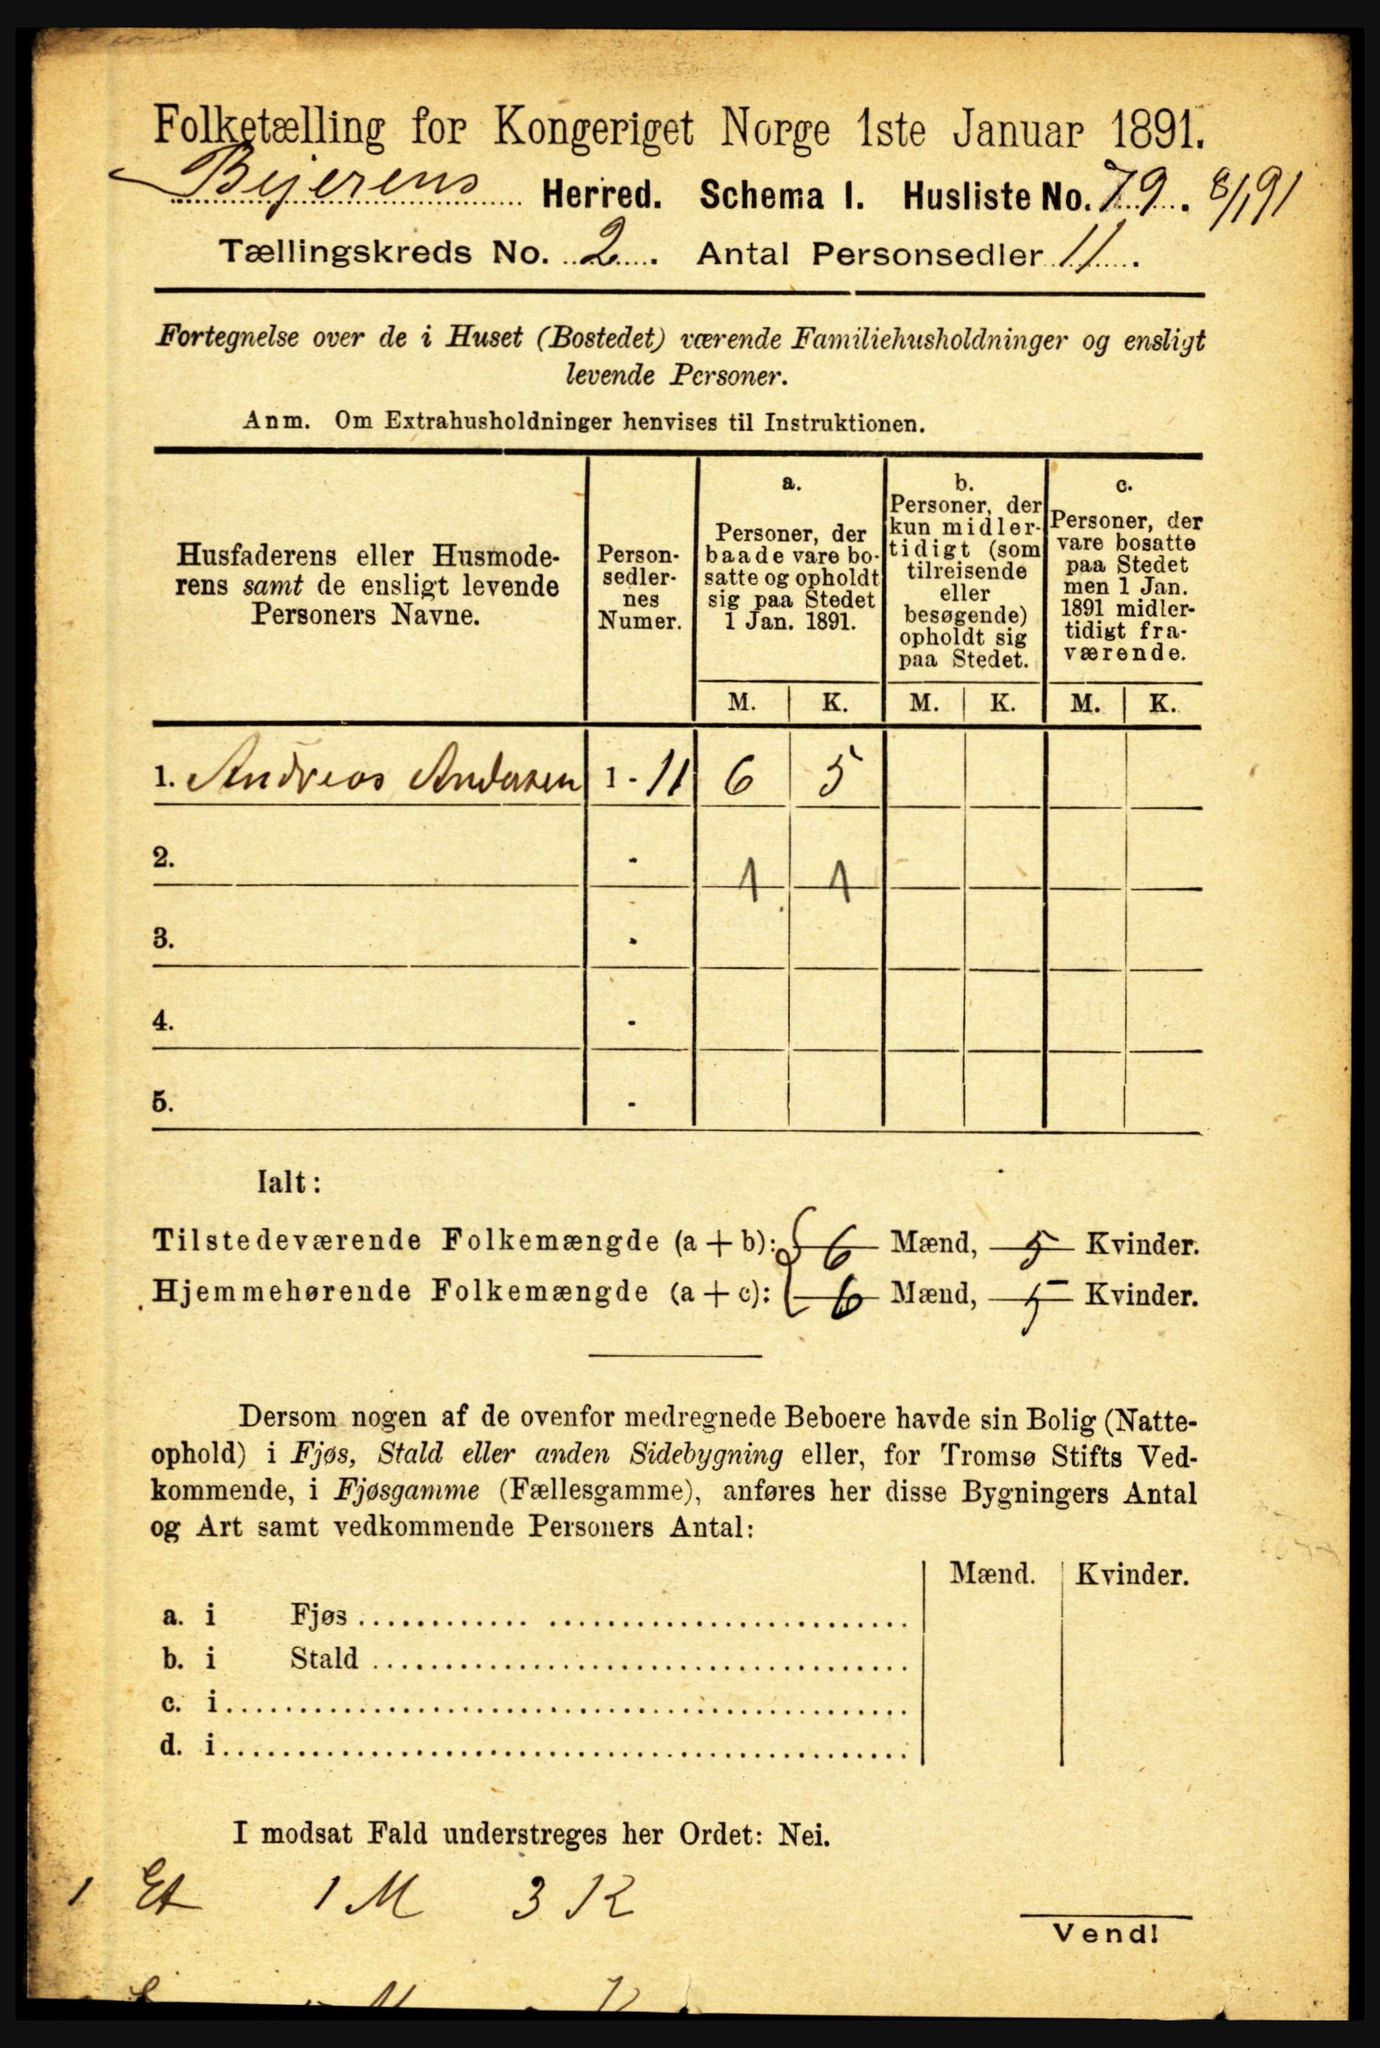 Folketælling for Kongeriget Norge 1ste Januar 1891.
Bejerens Herred. Schema I. Husliste No. 79. 8/1 91
Tællingskreds No. 2. Antal Personsedler 11.
Fortegnelse over de i Huset (Bostedet) værende Familiehusholdninger og ensligt
levende Personer.
Anm. Om Extrahusholdninger henvises til Instruktionen.
Husfaderens eller Husmode-
rens samt de ensligt levende
Personers Navne.
Person-
sedler-
nes
Numer.
a.
Personer, der
baade vare bo-
satte og opholdt
sig paa Stedet
1 Jan. 1891.
b.
Personer, der
kun midler-
tidigt (som
tilreisende
eller
besøgende)
opholdt sig
paa Stedet.
c.
Personer, der
vare bosatte
paa Stedet
men 1 Jan.
1891 midler-
tidigt fra-
værende.
M. K. M. K. M. K.
1. Andreas Andersen 1 - 11 6 5
2. -
1 1
3. -
4. -
5. -
Ialt:
Tilstedeværende Folkemængde (a + b): 6 Mænd, 5 Kvinder.
Hjemmehørende Folkemængde (a + c): 6 Mænd, 5 Kvinder.
Dersom nogen af de ovenfor medregnede Beboere havde sin Bolig (Natte-
ophold) i Fjøs, Stald eller anden Sidebygning eller, for Tromsø Stifts Ved-
kommende, i Fjøsgamme (Fællesgamme), anføres her disse Bygningers Antal
og Art samt vedkommende Personers Antal:
Mænd. Kvinder.
a. i Fjøs
b. i Stald
c. i
d. i
I modsat Fald understreges her Ordet: Nei.
1 Et 1 M 3 K
Vend!